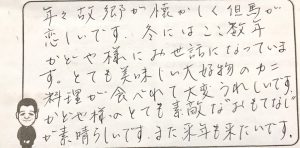 年々故郷が懐かしく但馬が
恋しいです。冬にはここ数年
かどや様にお世話になっていま
す。とても美味しい大好物のカニ
料理が食べれて大変うれしいです。
かどや様のとても素敵なおもてなし
が素晴らしいです。また来年も来たいです。